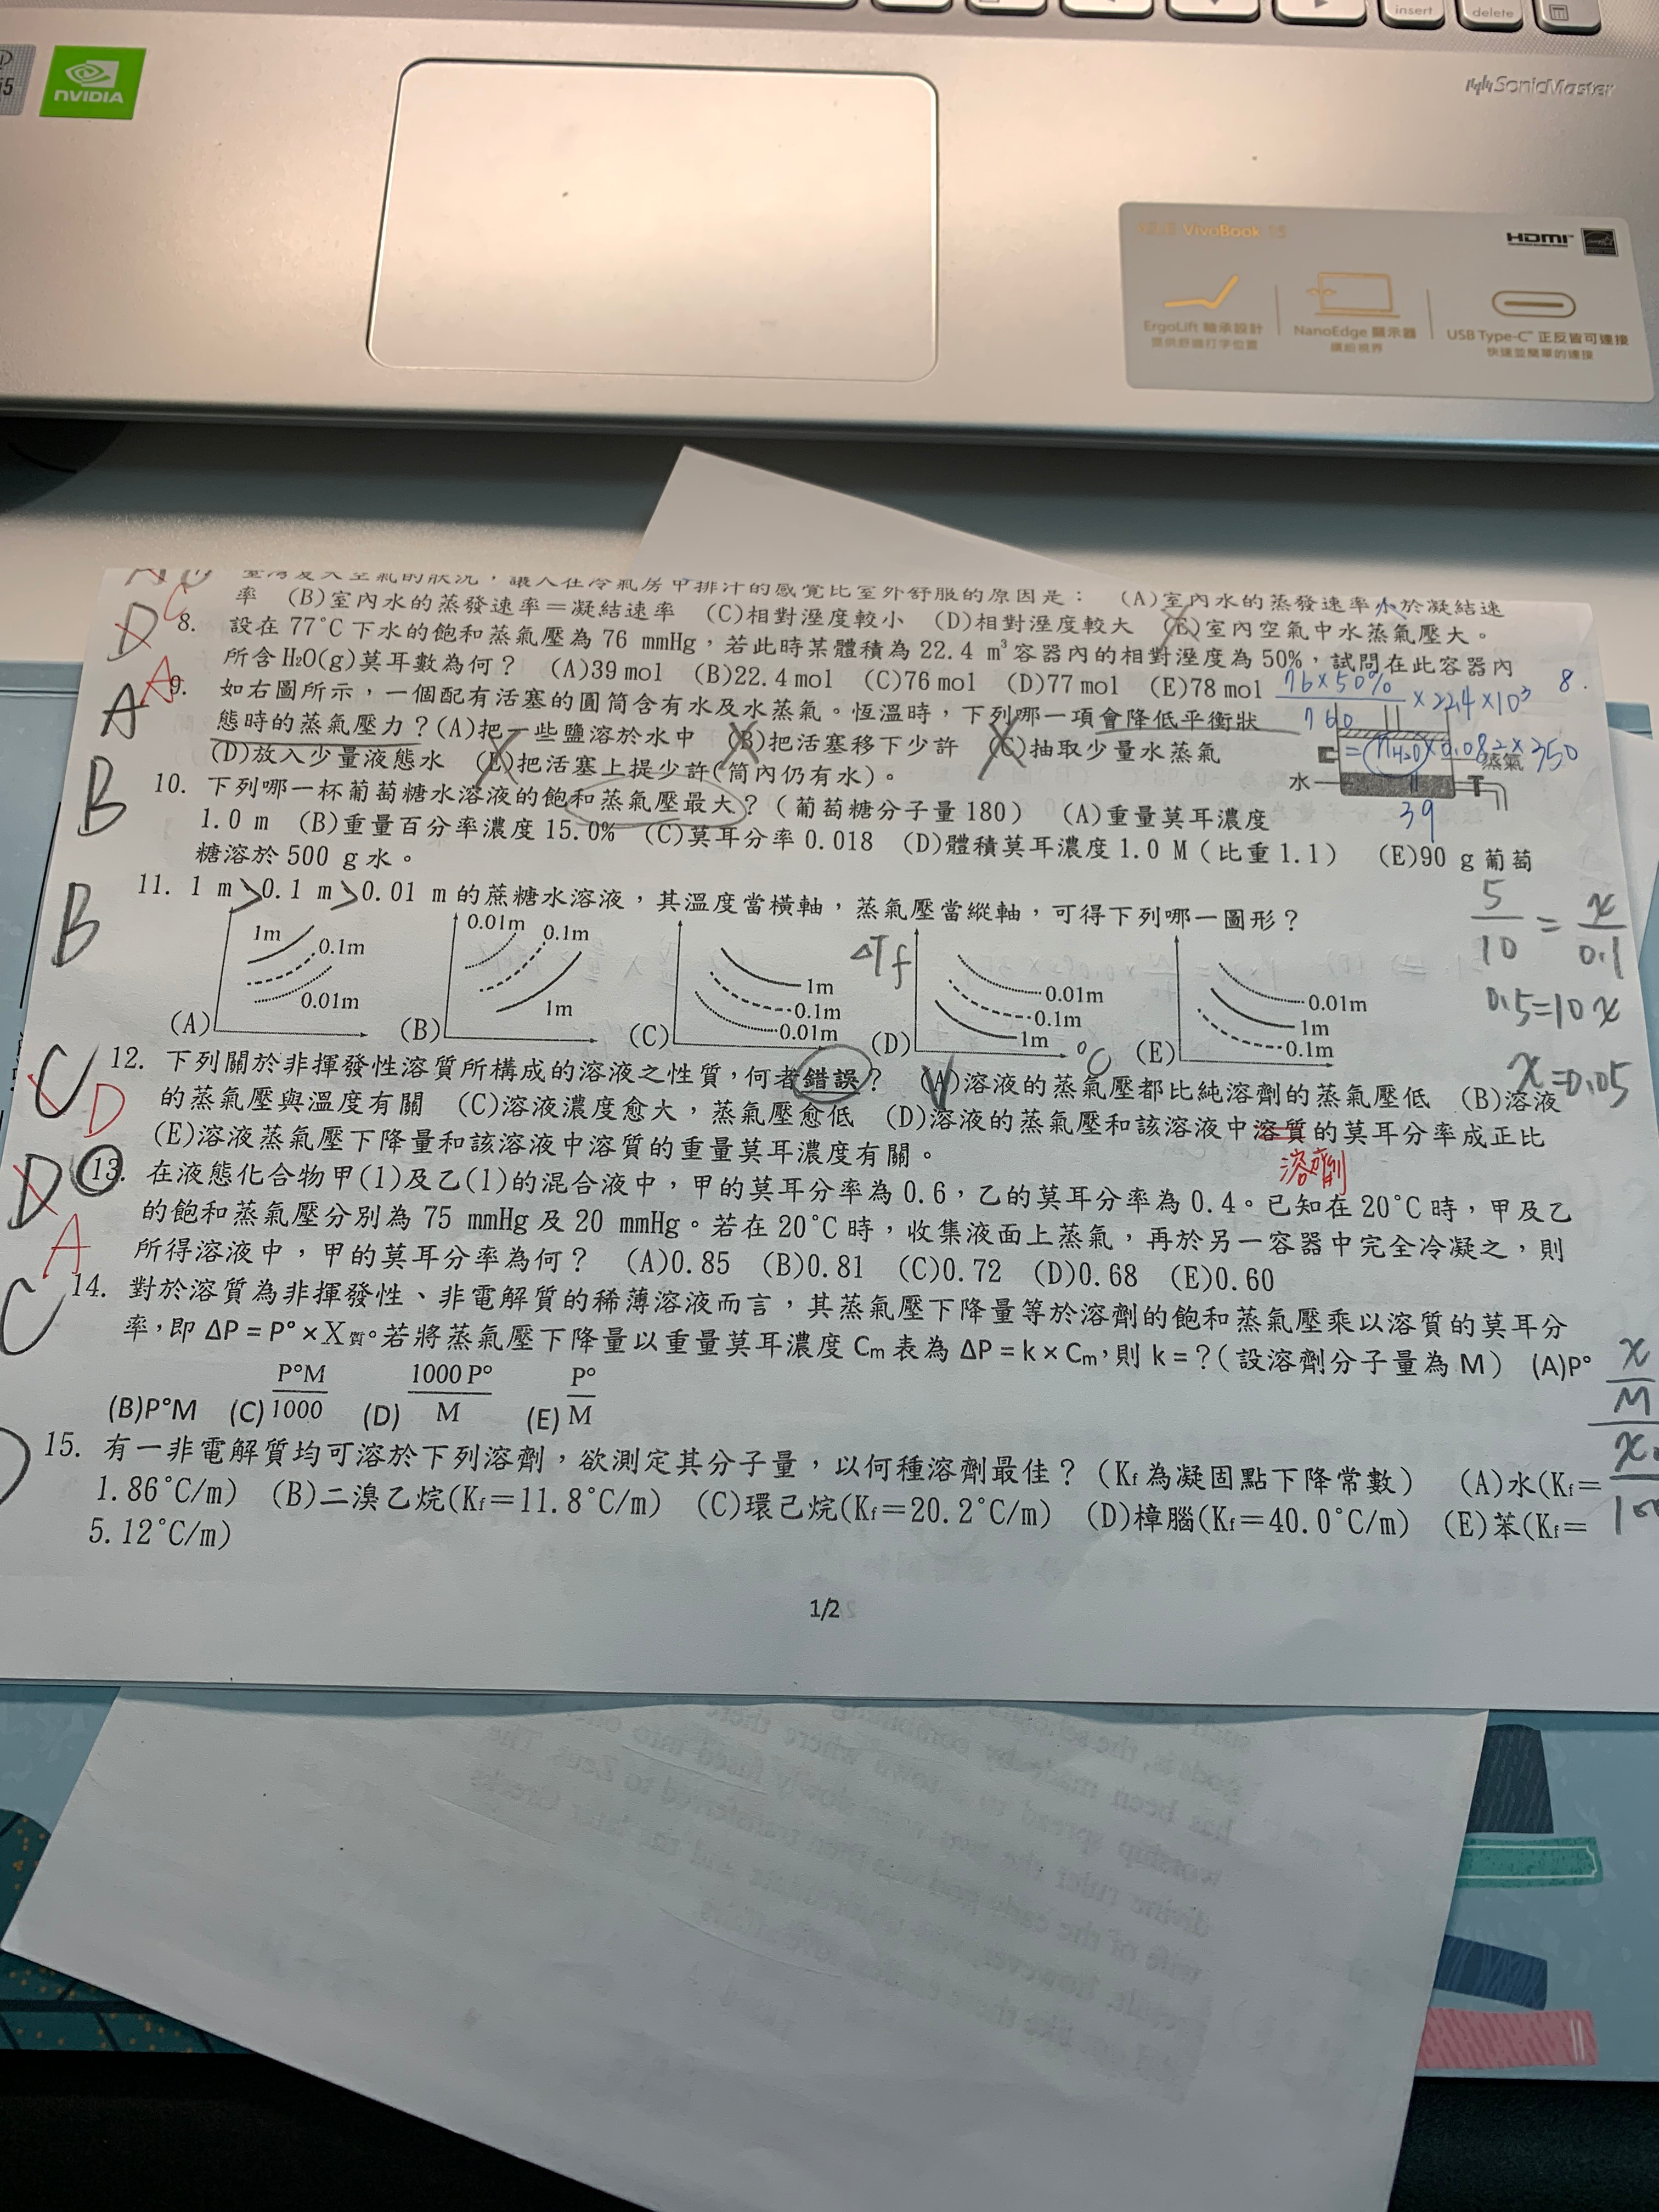 insert
delete
i5
NVIDIA
SonicMaster
VivoBook 15
HDMI
ErgoLift 軸承設計
提供舒適打字位置
NanoEdge 顯示器
繽紛視界
USB Type-C™ 正反皆可連接
快速並簡單的連接
臺灣夏天空氣的狀況，讓人在冷氣房中排汗的感覺比室外舒服的原因是： (A)室內水的蒸發速率小於凝結速
率 (B)室內水的蒸發速率＝凝結速率 (C)相對溼度較小 (D)相對溼度較大 (E)室內空氣中水蒸氣壓大。
D C
8. 設在 77°C 下水的飽和蒸氣壓為 76 mmHg，若此時某體積為 22.4 m³ 容器內的相對溼度為 50%，試問在此容器內
所含 H₂O(g)莫耳數為何？ (A)39 mol (B)22.4 mol (C)76 mol (D)77 mol (E)78 mol
A
8.
76×50%
760
×22.4×10³
=(nH₂O)×0.082×350
39
A
9. 如右圖所示，一個配有活塞的圓筒含有水及水蒸氣。恆溫時，下列哪一項會降低平衡狀
態時的蒸氣壓力？(A)把一些鹽溶於水中 (B)把活塞移下少許 (C)抽取少量水蒸氣
(D)放入少量液態水 (E)把活塞上提少許(筒內仍有水)。
蒸氣
水
B
10. 下列哪一杯葡萄糖水溶液的飽和蒸氣壓最大？（葡萄糖分子量180） (A)重量莫耳濃度
1.0 m (B)重量百分率濃度 15.0% (C)莫耳分率 0.018 (D)體積莫耳濃度 1.0 M（比重1.1） (E)90 g 葡萄
糖溶於 500 g 水。
B
11. 1 m＞0.1 m＞0.01 m 的蔗糖水溶液，其溫度當橫軸，蒸氣壓當縱軸，可得下列哪一圖形？
(A) 1m 0.1m 0.01m
(B) 0.01m 0.1m 1m
(C) 1m 0.1m 0.01m
(D) 0.01m 0.1m 1m
(E) 0.01m 1m 0.1m
ΔTf
°C
5/10 = x/0.1
0.5=10x
x=0.05
C D
12. 下列關於非揮發性溶質所構成的溶液之性質，何者錯誤？ (A)溶液的蒸氣壓都比純溶劑的蒸氣壓低 (B)溶液
的蒸氣壓與溫度有關 (C)溶液濃度愈大，蒸氣壓愈低 (D)溶液的蒸氣壓和該溶液中溶質的莫耳分率成正比
(E)溶液蒸氣壓下降量和該溶液中溶質的重量莫耳濃度有關。
溶劑
D A
13. 在液態化合物甲(l)及乙(l)的混合液中，甲的莫耳分率為 0.6，乙的莫耳分率為 0.4。已知在 20°C 時，甲及乙
的飽和蒸氣壓分別為 75 mmHg 及 20 mmHg。若在 20°C 時，收集液面上蒸氣，再於另一容器中完全冷凝之，則
所得溶液中，甲的莫耳分率為何？ (A)0.85 (B)0.81 (C)0.72 (D)0.68 (E)0.60
C
14. 對於溶質為非揮發性、非電解質的稀薄溶液而言，其蒸氣壓下降量等於溶劑的飽和蒸氣壓乘以溶質的莫耳分
率，即 ΔP = P° × X質。若將蒸氣壓下降量以重量莫耳濃度 Cm 表為 ΔP = k × Cm，則 k = ？（設溶劑分子量為 M） (A)P°
(B)P°M (C) P°M/1000 (D) 1000 P°/M (E) P°/M
x
M
15. 有一非電解質均可溶於下列溶劑，欲測定其分子量，以何種溶劑最佳？（Kf 為凝固點下降常數） (A)水(Kf＝
1.86°C/m) (B)二溴乙烷(Kf＝11.8°C/m) (C)環己烷(Kf＝20.2°C/m) (D)樟腦(Kf＝40.0°C/m) (E)苯(Kf＝
5.12°C/m)
1/2